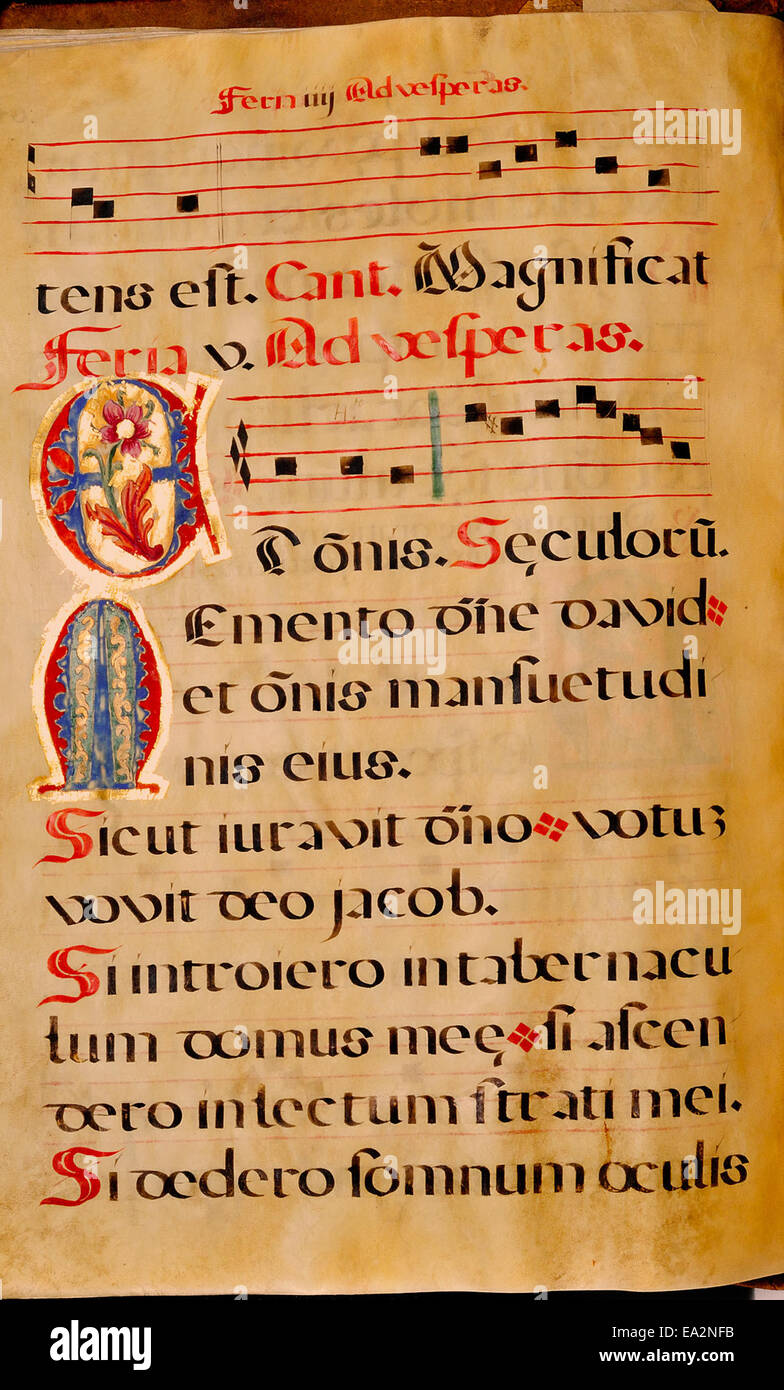 Feria iiij Ad veſperas.
tens eſt. Cant. M̃agnificat
Feria v. Ad veſperas.
ET õnis. Sęculorũ.
MEmento dñe david
et õnis manſuetudi
nis eius.
Sicut iuravit dño votuꝫ
vovit deo jacob.
Si introiero in tabernacu
lum domus meę ſi aſcen
dero in lectum ſtrati mei.
Si dedero ſomnum oculis
alamy
Image ID: EA2NFB
www.alamy.com